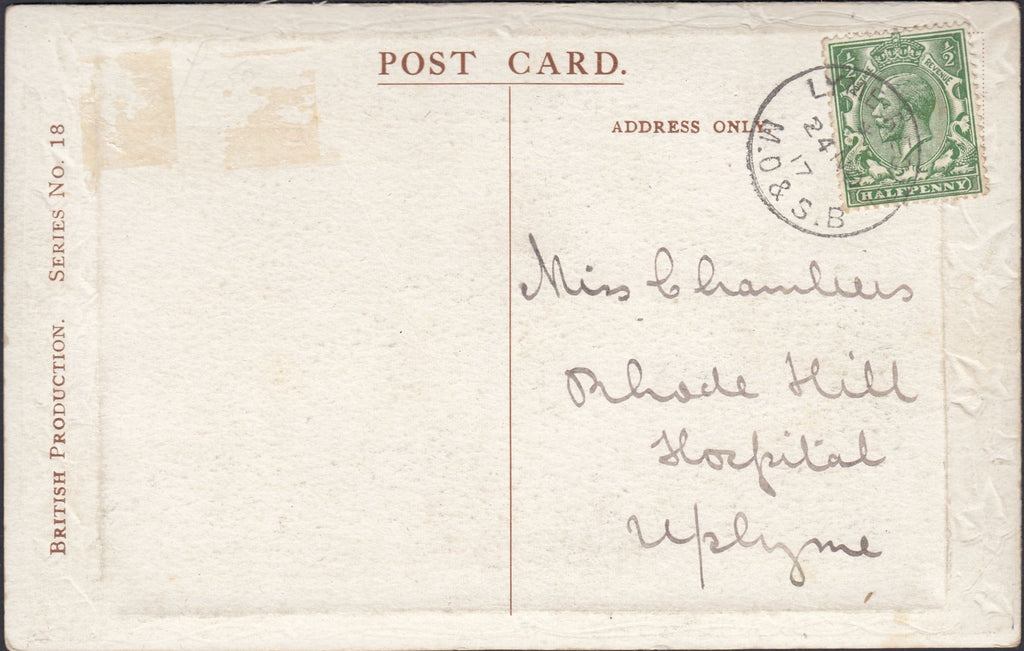 POST CARD.
ADDRESS ONLY.
BRITISH PRODUCTION. SERIES No. 18
REVENUE
HALFPENNY
24
17
M.O & S.B
Miss Chambers
Rhode Hill
Hospital
Uplyme